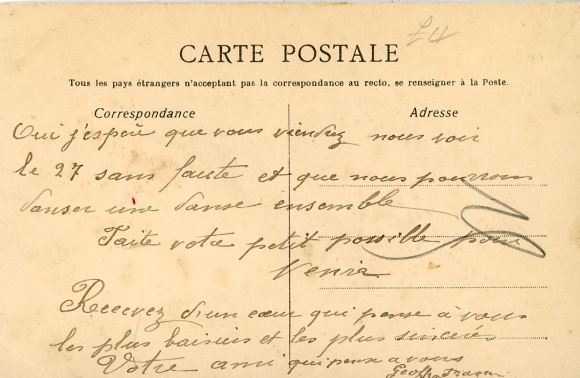 £4
CARTE POSTALE
Tous les pays étrangers n'acceptant pas la correspondance au recto, se renseigner à la Poste.
Correspondance
Adresse
Oui j'espère que vous viendrez nous voir
le 27 sans faute et que nous pourrons
danser une danse ensemble
Faite votre petit possible pour
Venir
Recevez d'un cœur qui pense à vous
les plus baisiers et les plus sincères
Votre ami qui pense a vous